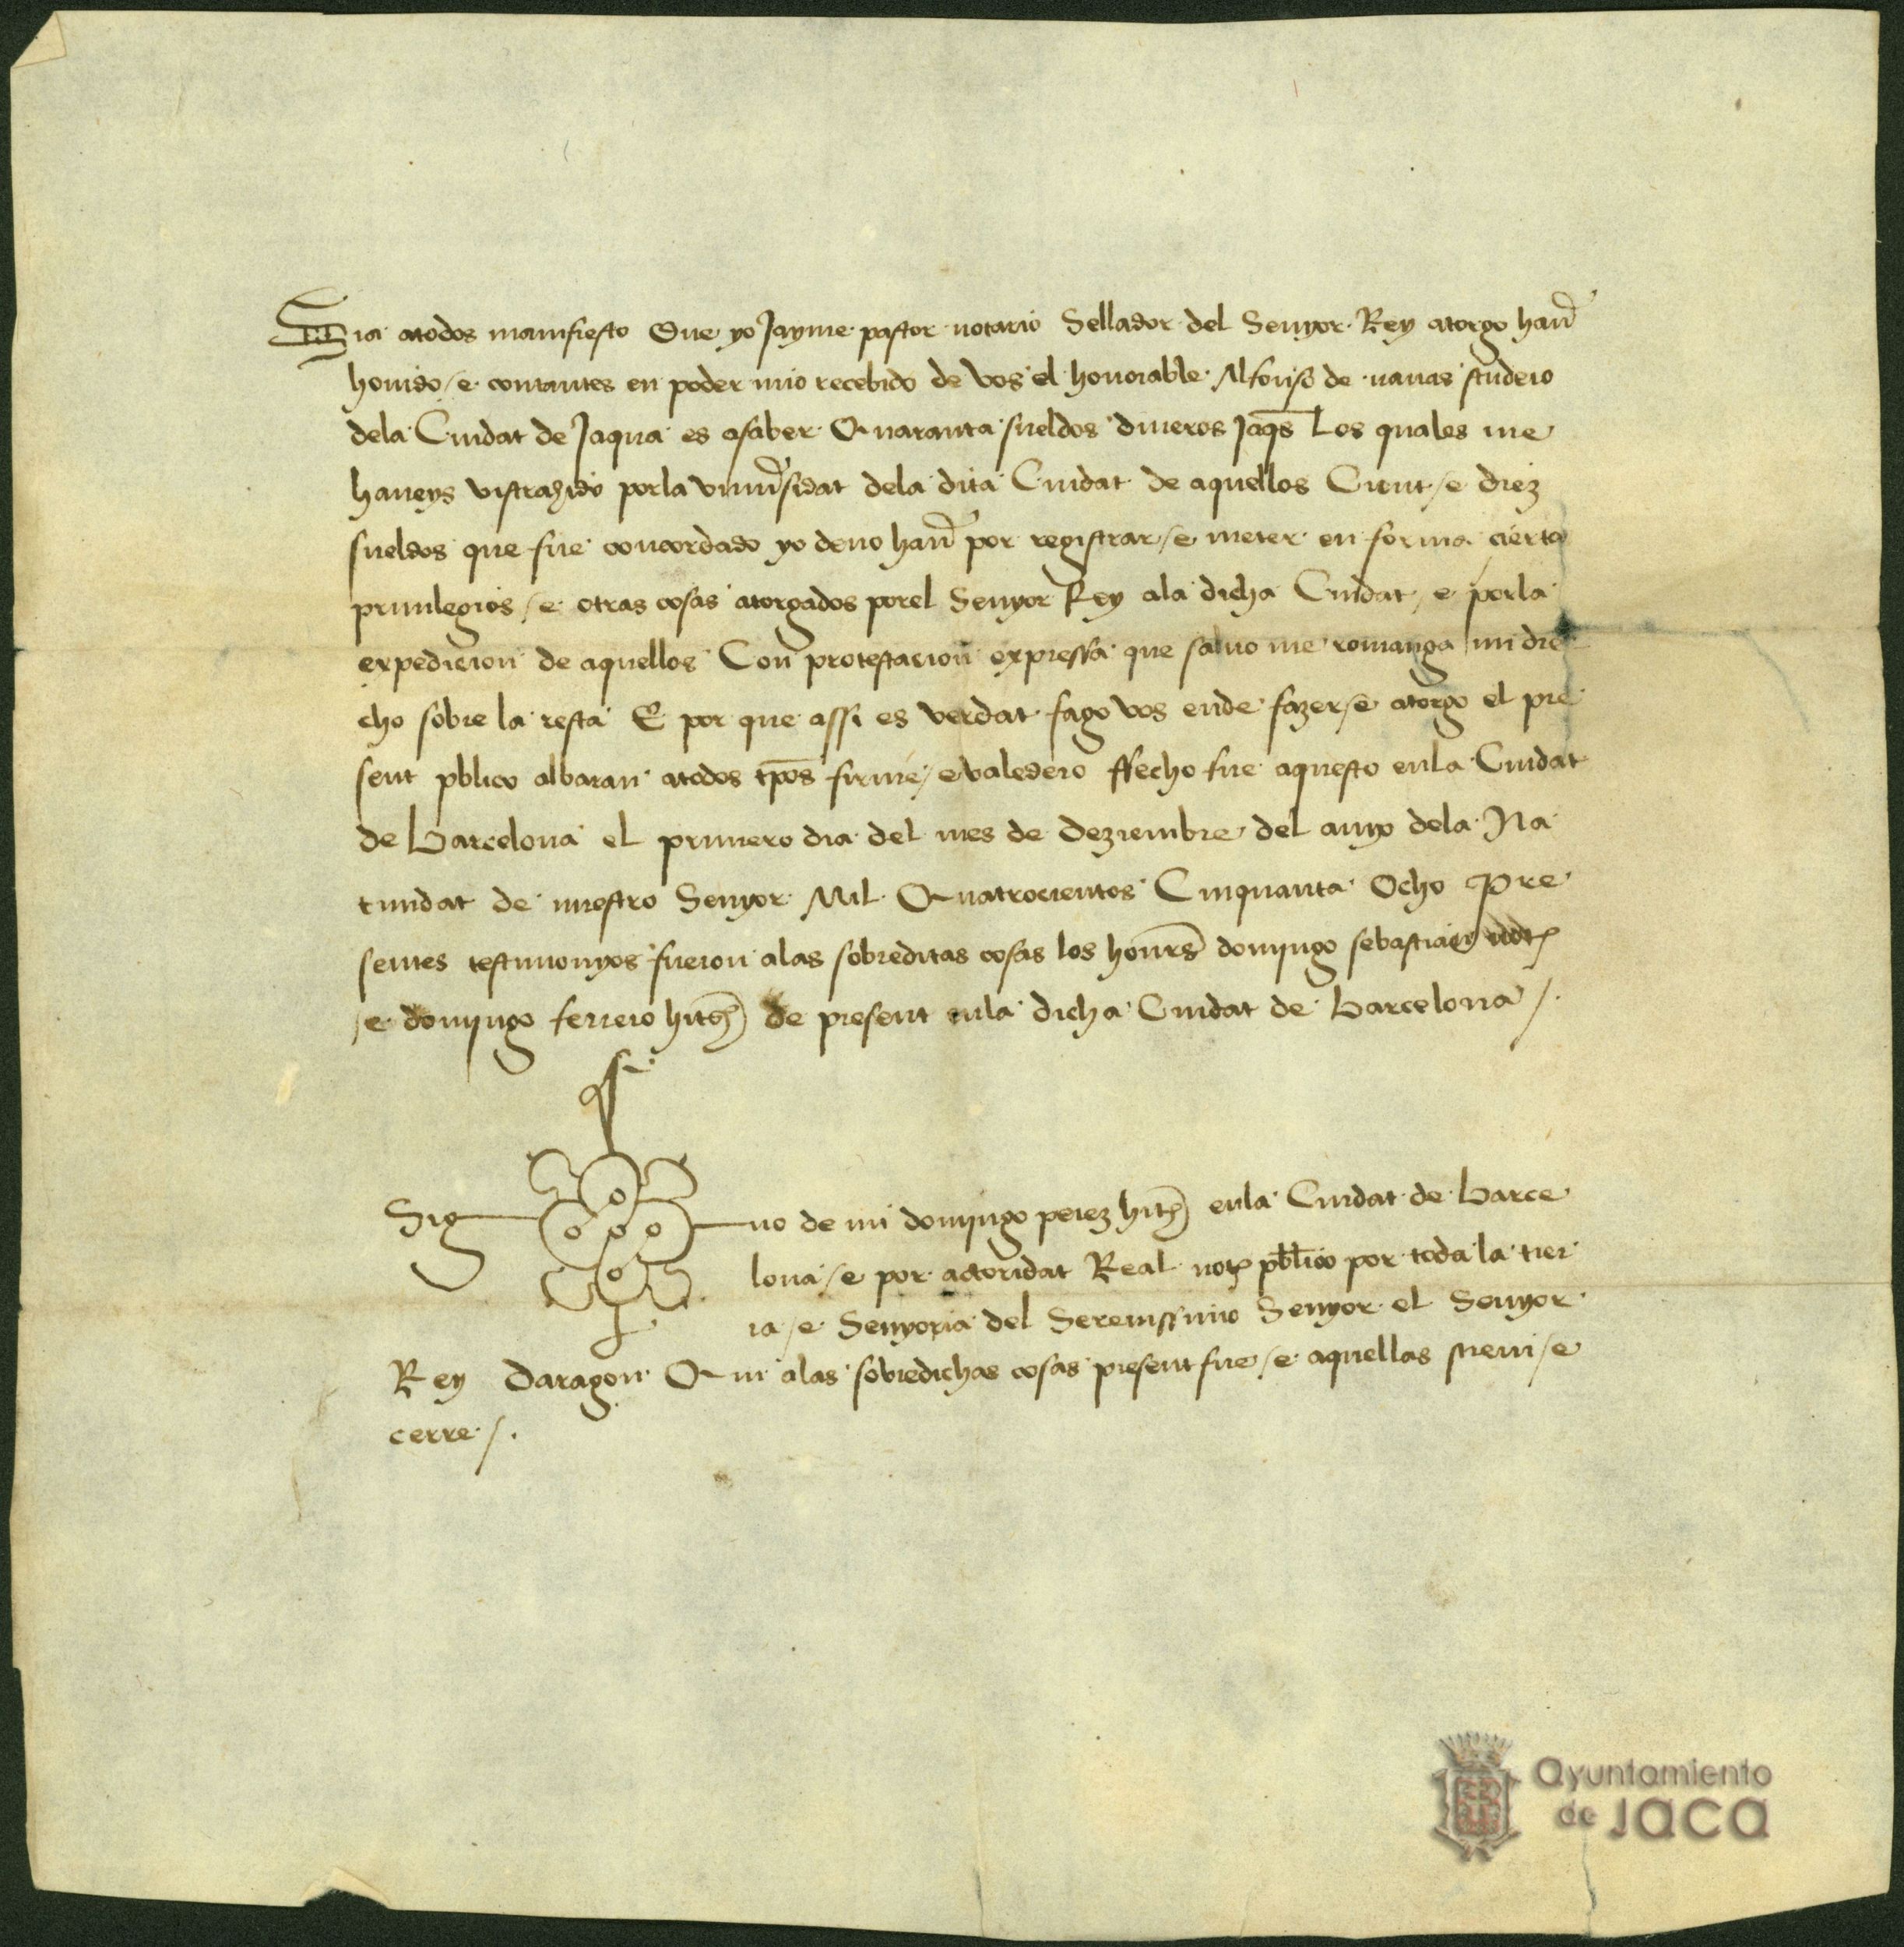 Sia atodos manifiesto Que yo Jayme pastor notario Sellador del Senyor Rey atorgo hauer
houido / e contantes en poder mio recebido de vos el honorable Alfonso de nauas scudero
dela Ciudat de Jaqua es asaber Quaranta sueldos dineros Jaqs Los quales me
haueys vistrahido porla vniuersidat dela dita Ciudat de aquellos Cient / e diez
sueldos que fue concordado yo deuo hauer por registrar / e meter en forma ciertos
priuilegios / e otras cosas atorgados porel Senyor Rey ala dicha Ciudat / e porla
expedicion de aquellos Con protestacion expressa que saluo me romanga mi dre
cho sobre la resta E por que assi es verdat fago vos ende fazer / e atorgo el pre
sent pblico albaran atodos tpos firme / e valedero ffecho fue aquesto enla Ciudat
de barcelona el primero dia del mes de deziembre del anyo dela Na
tiuidat de nuestro Senyor Mil Quatrocientos Cinquanta Ocho Pre
sentes testimonyos fueron alas sobreditas cosas los honrs domingo sebastian not
/ e domingo ferrero hit de present enla dicha Ciudat de barcelona /.
Sig no de mi domingo perez hit enla Ciudat de barce
lona / e por actoridat Real not pblico por toda la tier
ra / e Senyoria del Serenissimo Senyor el Senyor
Rey daragon Qui alas sobredichas cosas present fue / e aquellas screui / e
cerre /.
Ayuntamiento
de Jaca